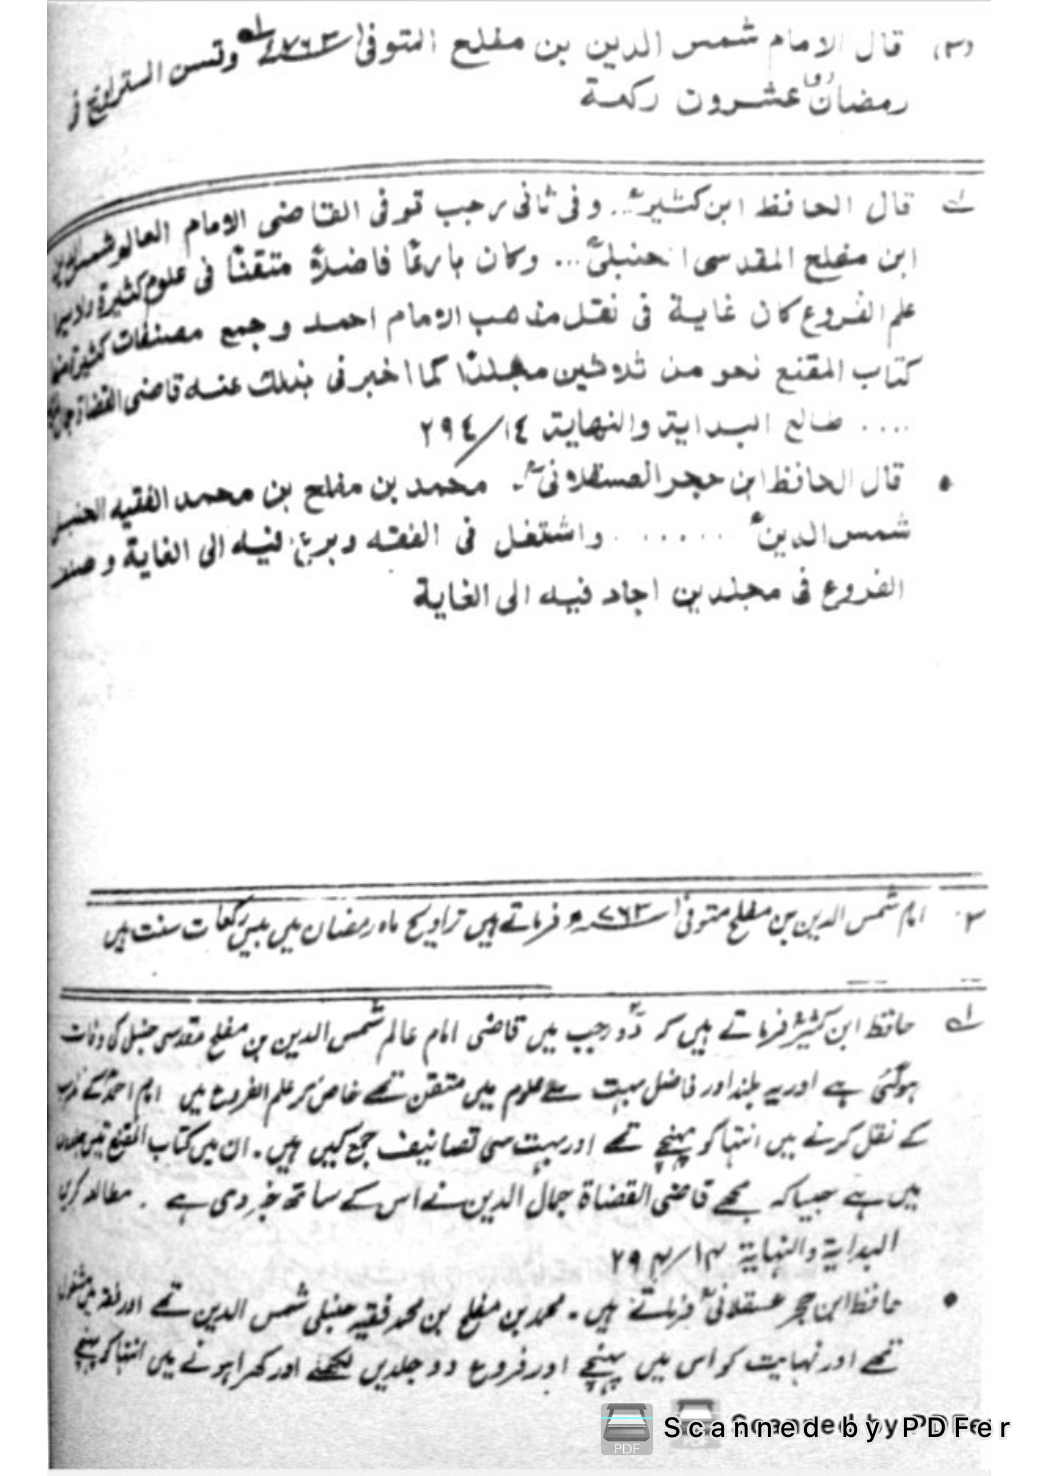 (٣) قال الامام شمس الدين بن مفلح المتوفى ٧٦٣ھ وتسن التراويح فى
رمضان عشرون ركعة
لـه قال الحافظ ابن كثيرؒ... وفى ثانى رجب توفى القاضى الامام العالم شمس الدين
ابن مفلح المقدسى الحنبلىؒ... وكان بارعًا فاضلاً متقنًا فى علوم كثيرة
علم الفروع كان غاية فى نقل مذهب الامام احمد وجمع مصنفات كثيرة منها
كتاب المقنع نحو من ثلاثين مجلدًا كما اخبرنى بذلك عنه قاضى القضاة
.... طالع البداية والنهاية ١٤/٢٩٤
• قال الحافظ ابن حجر العسقلانىؒ۔ محمد بن مفلح بن محمد الفقيه الحنبلى
شمس الدينؒ ....... واشتغل فى الفقه وبرع فيه الى الغاية وصنف
الفروع فى مجلدين اجاد فيه الى الغاية
٣۔ امام شمس الدین بن مفلح متوفیٰ ٧٦٣ھ فرماتے ہیں تراویح ماہ رمضان میں بیس رکعات سنت ہیں
لـه حافظ ابن کثیرؒ فرماتے ہیں کہ دو رجب میں قاضی امام عالم شمس الدین بن مفلح مقدسی حنبلی کی وفات
ہوگئی ہے اور یہ بلند اور فاضل بہت سے علوم میں متقن تھے خاص کر علم الفروع میں امام احمدؒ کے مذہب
کے نقل کرنے میں انتہا کو پہنچے تھے اور بہت سی تصانیف جمع کیں ہیں۔ ان میں کتاب المقنع تیس جلدوں
میں ہے جیساکہ مجھے قاضی القضاة جمال الدین نے اس کے ساتھ خبر دی ہے۔ مطالعہ کریں
البدایة والنہایة ١٤/٢٩٤
• حافظ ابن حجر عسقلانیؒ فرماتے ہیں۔ محمد بن مفلح بن محمد فقیہ حنبلی شمس الدین تھے اور فقہ میں مشغول
تھے اور نہایت کو اس میں پہنچے اور فروع دو جلدیں لکھے اور کھرا ہونے میں انتہا کو پہنچے
Scanned by PDFer
Scanned by PDFer